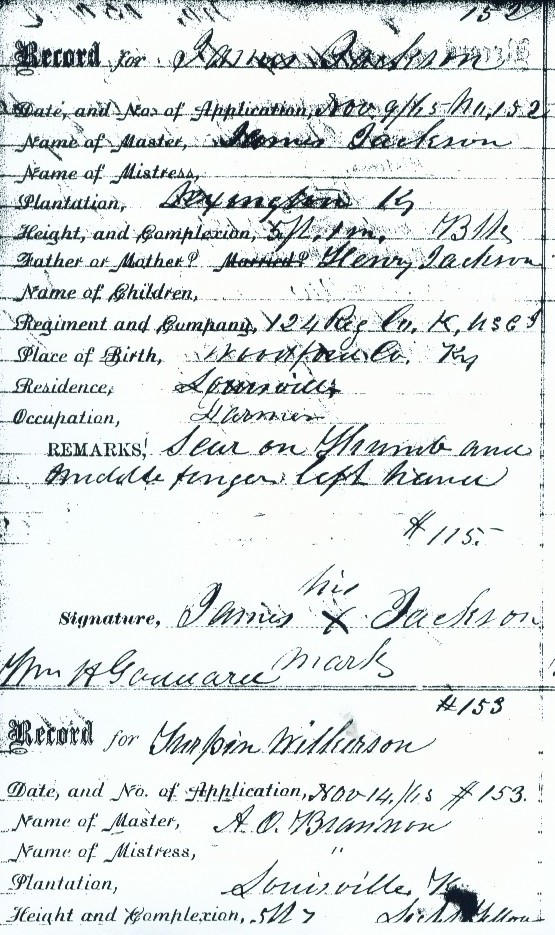 152
Record for James Jackson
Date, and No. of Application, Nov. 9/65 No. 152
Name of Master, James Jackson
Name of Mistress,
Plantation, Lexington Ky
Height, and Complexion, 5ft. 1in. Blk
Father or Mother? Married? Henry Jackson
Name of Children,
Regiment and Company, 124 Reg Co. K, USCI
Place of Birth, Woodford Co. Ky
Residence, Louisville
Occupation, Farmer
REMARKS, Scar on Thumb and
middle finger left hand
$115.
his
Signature, James X Jackson
Wm H mark
#153
Record for Turpin Wilkerson
Date, and No. of Application, Nov 14./65 #153.
Name of Master, A. O. Brannon
Name of Mistress, "
Plantation, Louisville Ky
Height and Complexion, 5ft 7 Yellow